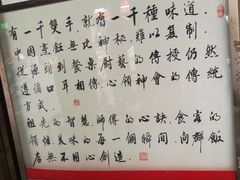 有一千雙手，就有一千種味道．
中國烹飪無比神秘，難以复制．
從源頭到餐桌廚藝的傳授仍然
遵循口耳相傳心領神會的傳統
方式．
祖先的智慧師傅的心訣．食客的
領悟美味的每一個瞬間．向群飯
店無不用心創造．